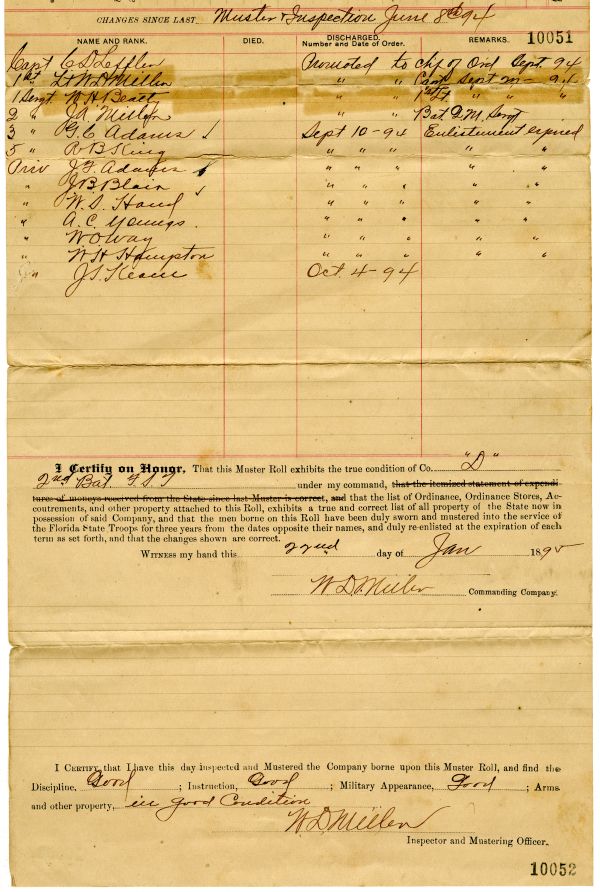 CHANGES SINCE LAST Muster & Inspection June 8th 94
NAME AND RANK. DIED. DISCHARGED. Number and Date of Order. REMARKS. 10051
Capt C D Leffler Promoted to Chf of Ord Sept. 94
1st Lt W. D. Miller " " Capt Sept " 94
1 Sergt W H Beact " " 1st Lt " "
2 " J A Miller Bat Q. M. Sergt
3 " G. C Adams ✓ Sept 10-94 Enlistement expired
5 " R B King " " " " "
Priv J. F. Adams " " " " "
" J B Blain ✓ " " " " "
" W. S. Hand " " " " "
" A. C. Youngs. " " " " "
" W O Way " " " " "
" W. H Hampton " " " " "
" J. S. Oct. 4-94
I Certify on Honor, That this Muster Roll exhibits the true condition of Co. "D"
2nd Bat F. S. T under my command, that the itemized statement of expendi-
tures of moneys received from the State since last Muster is correct, and that the list of Ordinance, Ordinance Stores, Ac-
coutrements, and other property attached to this Roll, exhibits a true and correct list of all property of the State now in
possession of said Company, and that the men borne on this Roll have been duly sworn and mustered into the service of
the Florida State Troops for three years from the dates opposite their names, and duly re-enlisted at the expiration of each
term as set forth, and that the changes shown are correct.
WITNESS my hand this 22nd day of Jan 1895
W. D. Miller Commanding Company.
I CERTIFY, that I have this day inspected and Mustered the Company borne upon this Muster Roll, and find the
Discipline, Good; Instruction, Good; Military Appearance, Good; Arms
and other property, in good Condition
W. D. Miller
Inspector and Mustering Officer.
10052